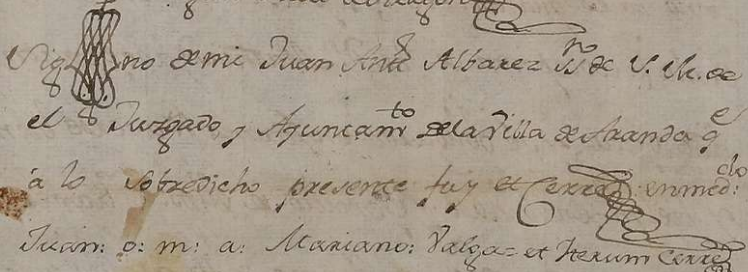 Sig no de mi Juan Antº Albarez SSno de S. M. de
el Juzgado y Ayuncamto de la Villa de Aranda qe
a lo sobredicho presente fuy et Cerre: enmeddo:
Juan: o: m: a: Mariano: Valga= et Iterum Cerre